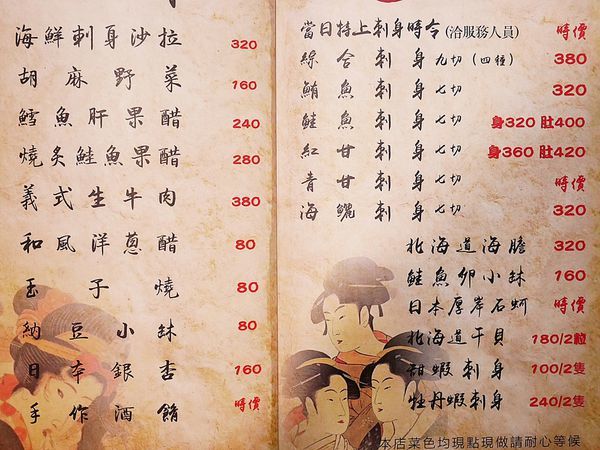 海鮮刺身沙拉 320
胡麻野菜 160
鱈魚肝果醋 240
燒炙鮭魚果醋 280
義式生牛肉 380
和風洋蔥醋 80
玉子燒 80
納豆小缽 80
日本銀杏 160
手作酒餚 時價
當日特上刺身時令(洽服務人員) 時價
綜合刺身 九切(四種) 380
鮪魚刺身 七切 320
鮭魚刺身 七切 身320 肚400
紅甘刺身 七切 身360 肚420
青甘刺身 七切 時價
海鱺刺身 七切 320
北海道海膽 320
鮭魚卵小缽 160
日本厚岸石蚵 時價
北海道干貝 180/2粒
甜蝦刺身 100/2隻
牡丹蝦刺身 240/2隻
本店菜色均現點現做請耐心等候